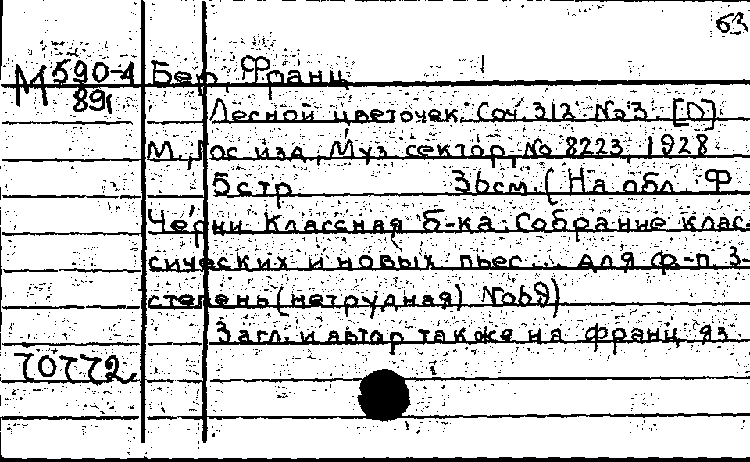 63
М 590-4 Бер, Франц
89
Лесной цветочек. Соч. 312 No 3. [D].
М., Гос изд, Муз сектор, No 8223, 1928
5 стр 36 см. (На обл. Ф
Черни Классная б-ка. Собрание клас-
сических и новых пьес... для ф-п. 3-
степень (нетрудная) No 69)
Загл. и автор также на франц яз.
70772